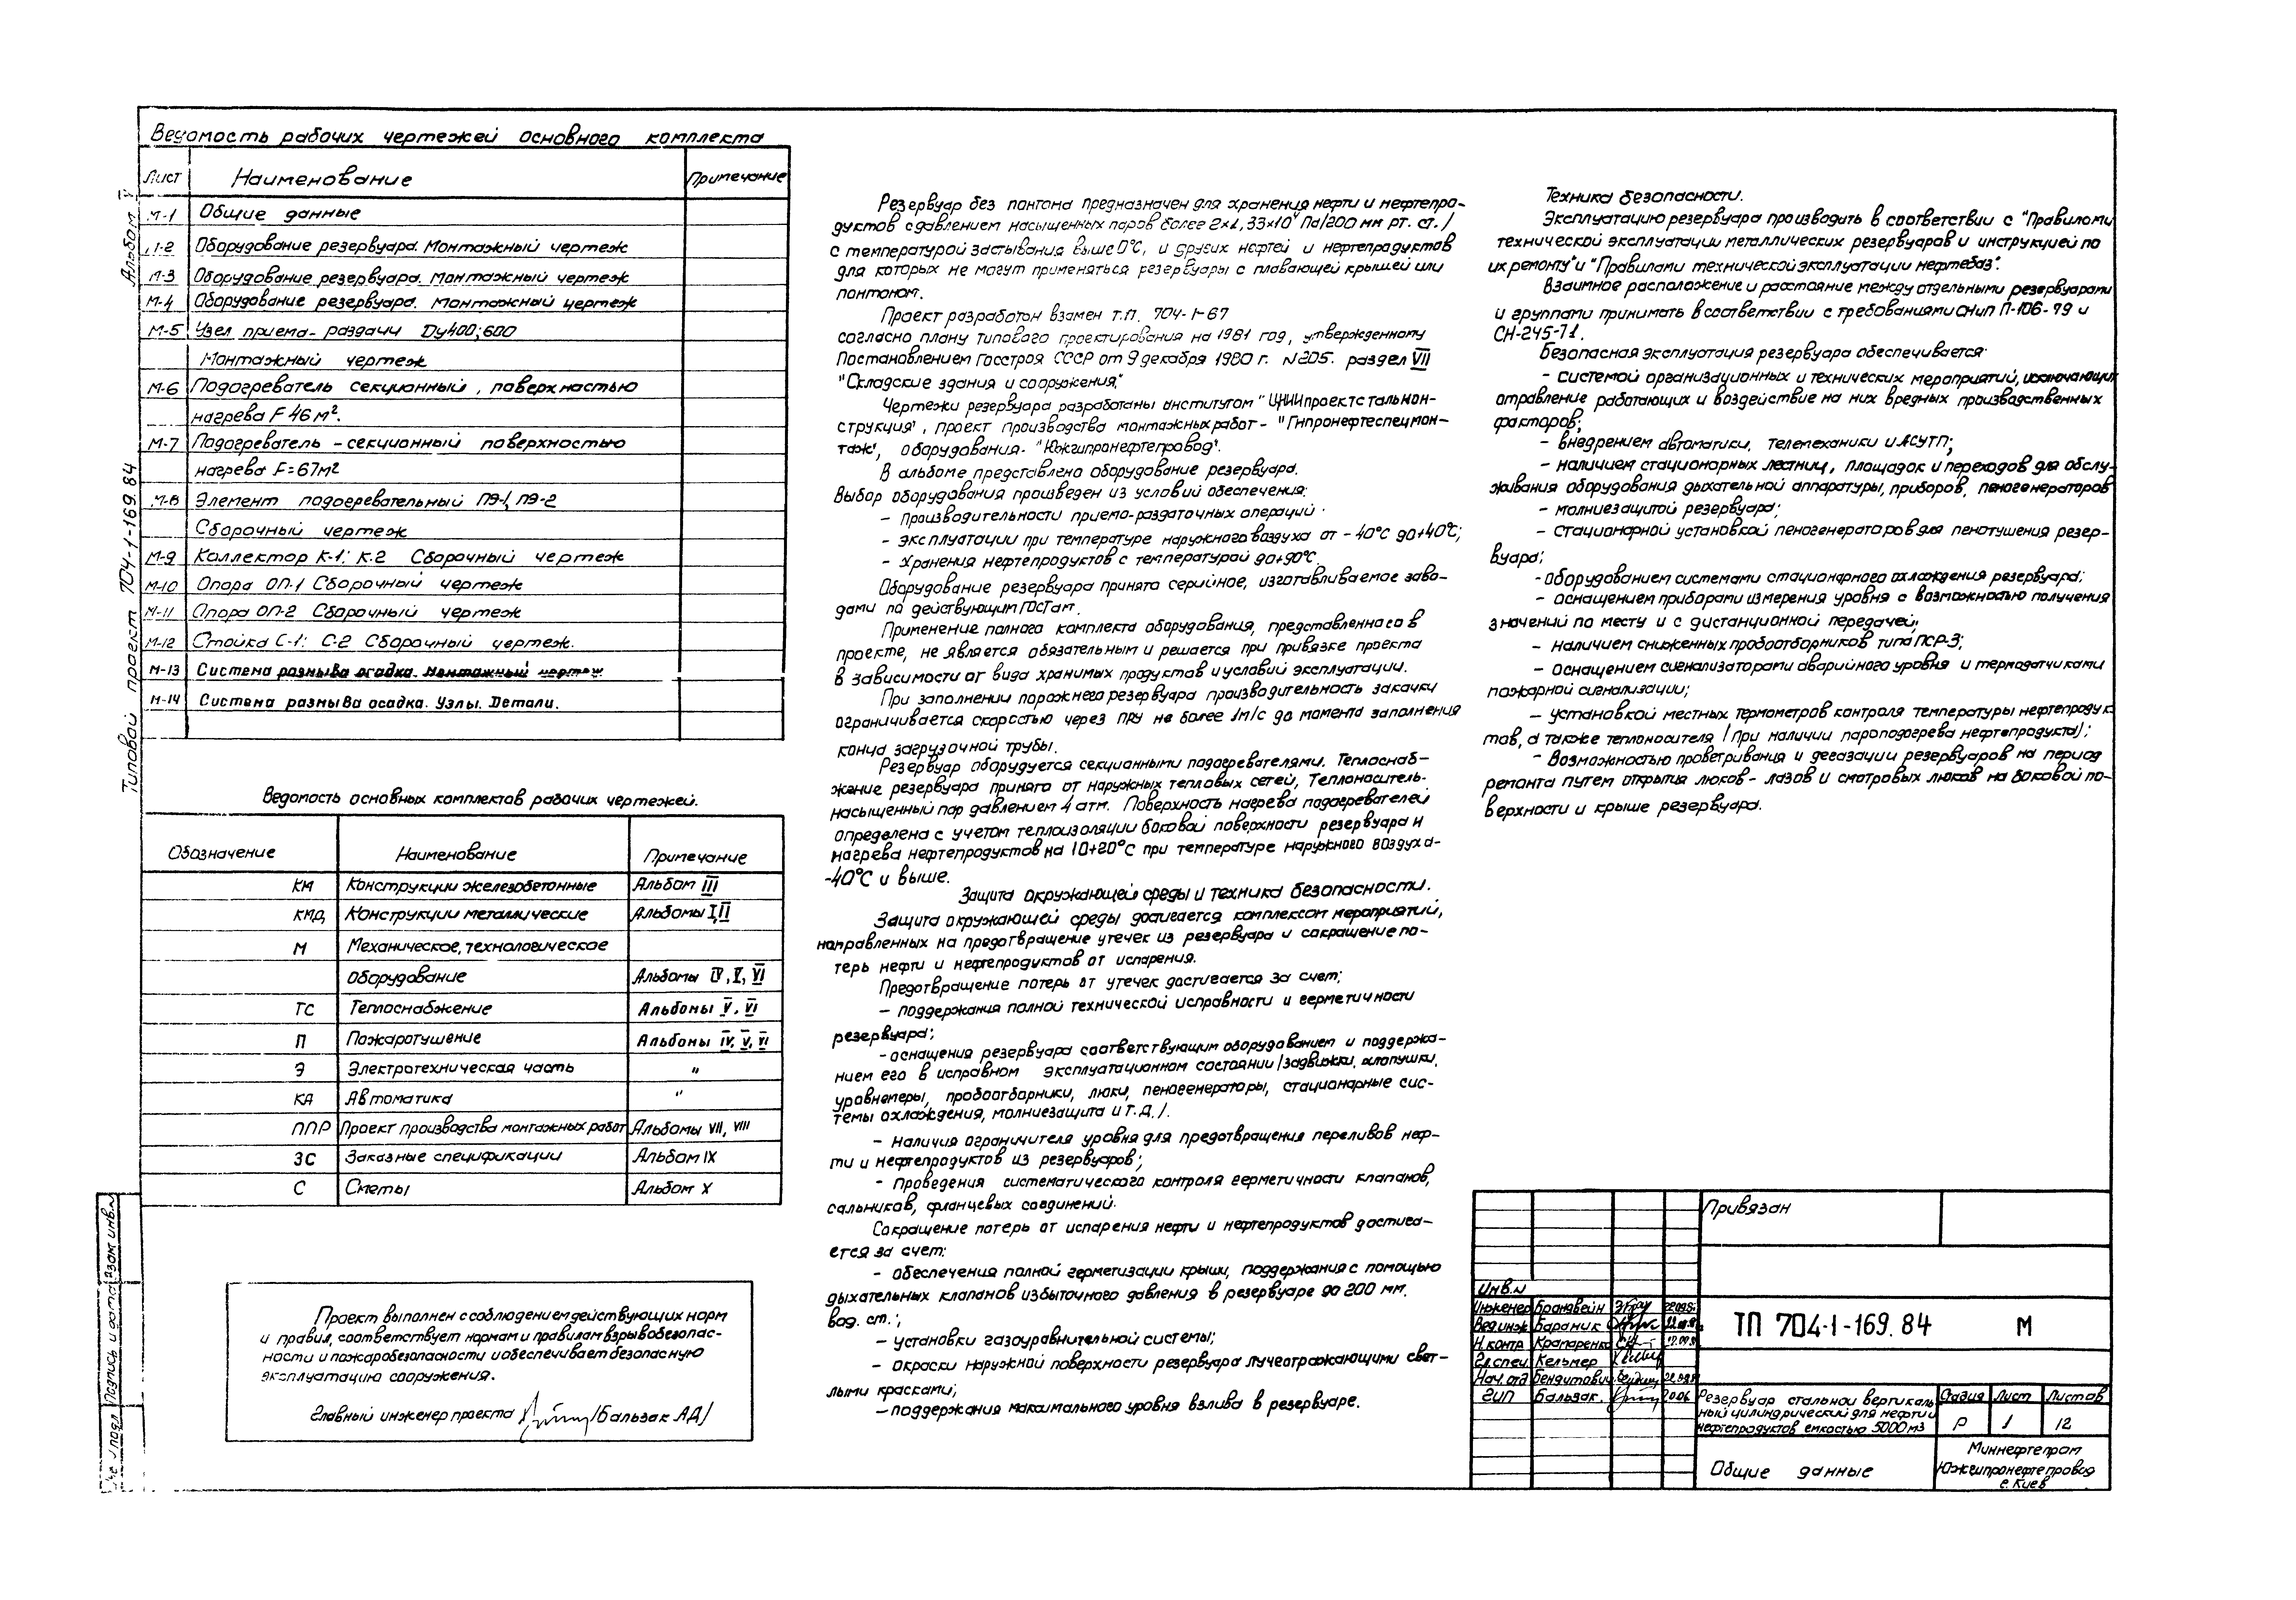 Альбом V
Типовой проект 704-1-169.84
Ведомость рабочих чертежей основного комплекта
Лист Наименование Примечание
М-1 Общие данные
М-2 Оборудование резервуара. Монтажный чертеж
М-3 Оборудование резервуара. Монтажный чертеж
М-4 Оборудование резервуара. Монтажный чертеж
М-5 Узел приема-раздачи Dу400;600
Монтажный чертеж
М-6 Подогреватель секционный, поверхностью
нагрева F 46 м².
М-7 Подогреватель - секционный поверхностью
нагрева F=67м²
М-8 Элемент подогревательный ПЭ-1, ПЭ-2
Сборочный чертеж
М-9 Коллектор К-1; К-2 Сборочный чертеж
М-10 Опора ОП-1 Сборочный чертеж
М-11 Опора ОП-2 Сборочный чертеж
М-12 Стойка С-1; С-2 Сборочный чертеж.
М-13 Система размыва осадка. Монтажный чертеж
М-14 Система размыва осадка. Узлы. Детали.
Ведомость основных комплектов рабочих чертежей.
Обозначение Наименование Примечание
КМ Конструкции железобетонные Альбом III
КМД Конструкции металлические Альбомы I,II
М Механическое, технологическое
оборудование Альбомы IV, V, VI
ТС Теплоснабжение Альбомы V, VI
П Пожаротушение Альбомы IV, V, VI
Э Электротехническая часть "
КА Автоматика "
ППР Проект производства монтажных работ Альбомы VII, VIII
ЗС Заказные спецификации Альбом IX
С Сметы Альбом X
Проект выполнен с соблюдением действующих норм
и правил, соответствует нормам и правилам взрывобезопас-
ности и пожаробезопасности и обеспечивает безопасную
эксплуатацию сооружения.
Главный инженер проекта /Бальзак А.Д./
Резервуар без понтона предназначен для хранения нефти и нефтепро-
дуктов с давлением насыщенных паров более 2×1,33×10⁴ Па/200 мм рт. ст./
с температурой застывания выше 0°С, и других нефтей и нефтепродуктов
для которых не могут применяться резервуары с плавающей крышей или
понтоном.
Проект разработан взамен т.п. 704-1-67
согласно плану типового проектирования на 1981 год, утвержденному
Постановлением Госстроя СССР от 9 декабря 1980 г. N 205. раздел VII
"Складские здания и сооружения."
Чертежи резервуара разработаны институтом "ЦНИИпроектстальмон-
струкция", проект производства монтажных работ - "Гипронефтеспецмон-
таж", оборудования - "Южгипронефтепровод".
В альбоме представлено оборудование резервуара.
Выбор оборудования произведен из условий обеспечения:
- производительности приемо-раздаточных операций
- эксплуатации при температуре наружного воздуха от -40°С до+40°С;
- хранения нефтепродуктов с температурой до+90°С.
Оборудование резервуара принято серийное, изготавливаемое заво-
дами по действующим ГОСТам.
Применение полного комплекта оборудования, представленного в
проекте, не является обязательным и решается при привязке проекта
в зависимости от вида хранимых продуктов и условий эксплуатации.
При заполнении порожнего резервуара производительность закачки
ограничивается скоростью через ПРУ не более 1м/с до момента заполнения
конца загрузочной трубы.
Резервуар оборудуется секционными подогревателями. Теплоснаб-
жение резервуара принято от наружных тепловых сетей, Теплоноситель-
насыщенный пар давлением 4 атм. Поверхность нагрева подогревателей
определена с учетом теплоизоляции боковой поверхности резервуара и
нагрева нефтепродуктов на 10÷20°С при температуре наружного воздуха-
-40°С и выше.
Защита окружающей среды и техника безопасности.
Защита окружающей среды достигается комплексом мероприятий,
направленных на предотвращение утечек из резервуара и сокращение по-
терь нефти и нефтепродуктов от испарения.
Предотвращение потерь от утечек достигается за счет;
- поддержания полной технической исправности и герметичности
резервуара;
- оснащения резервуара соответствующим оборудованием и поддержа-
нием его в исправном эксплуатационном состоянии /задвижки, хлопушки,
уровнемеры, пробоотборники, люки, пеногенераторы, стационарные сис-
темы охлаждения, молниезащита и т.д./.
- наличия ограничителя уровня для предотвращения переливов неф-
ти и нефтепродуктов из резервуаров;
- проведения систематического контроля герметичности клапанов,
сальников, фланцевых соединений.
Сокращение потерь от испарения нефти и нефтепродуктов достига-
ется за счет:
- обеспечения полной герметизации крыши, поддержания с помощью
дыхательных клапанов избыточного давления в резервуаре до 200 мм.
вод. ст.;
- установки газоуравнительной системы;
- окраски наружной поверхности резервуара лучеотражающими свет-
лыми красками;
- поддержания максимального уровня взлива в резервуаре.
Техника безопасности.
Эксплуатацию резервуара производить в соответствии с "Правилами
технической эксплуатации металлических резервуаров и инструкцией по
их ремонту" и "Правилами технической эксплуатации нефтебаз".
Взаимное расположение и расстояние между отдельными резервуарами
и группами принимать в соответствии с требованиями СНиП П-106-79 и
СН-245-71.
Безопасная эксплуатация резервуара обеспечивается:
- системой организационных и технических мероприятий, исключающих
отравление работающих и воздействие на них вредных производственных
факторов;
- внедрением автоматики, телемеханики и АСУТП;
- наличием стационарных лестниц, площадок и переходов для обслу-
живания оборудования дыхательной аппаратуры, приборов, пеногенераторов
- молниезащитой резервуара;
- стационарной установкой пеногенераторов для пенотушения резер-
вуара;
- оборудованием системами стационарного охлаждения резервуара;
- оснащением приборами измерения уровня с возможностью получения
значений по месту и с дистанционной передачей;
- наличием сниженных пробоотборников типа ПСР-3;
- оснащением сигнализаторами аварийного уровня и термодатчиками
пожарной сигнализации;
- установкой местных термометров контроля температуры нефтепродук
тов, а также теплоносителя /при наличии пароподогрева нефтепродукта/;
- возможностью проветривания и дегазации резервуаров на период
ремонта путем открытия люков- лазов и смотровых люков на боковой по-
верхности и крыше резервуара.
Привязан
Инв.N
Инженер Брандвейн
Вед.инж Бараник
Н.контр Крапаренко
Гл.спец. Кельмер
Нач.отд Бендитович
ГИП Бальзак. 20.06
ТП 704-1-169.84 М
Резервуар стальной вертикаль
ный цилиндрический для нефти и
нефтепродуктов емкостью 5000 м3
Стадия Лист Листов
Р 1 12
Общие данные
Миннефтепром
Южгипронефтепровод
г. Киев
Взам инв.N
Подпись и дата